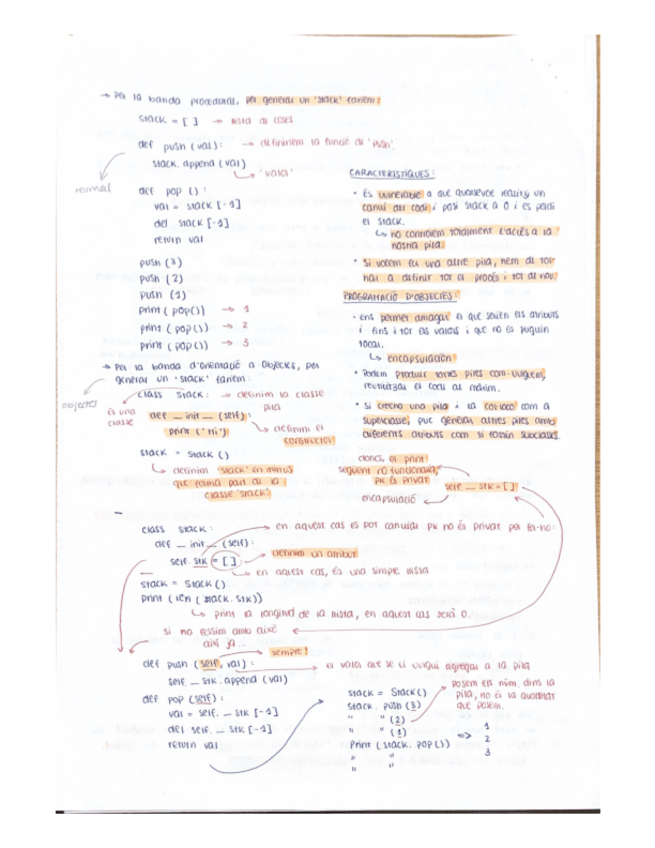 → Per la banda procedural, per generar un 'stack' faríem:
stack = [ ] → llista de coses
def push (val): → definiríem la funció de 'push'.
stack.append (val)
↳ 'valor'
normal
def pop ():
val = stack [-1]
del stack [-1]
return val
push (3)
push (2)
push (1)
print ( pop()) → 1
print ( pop()) → 2
print ( pop()) → 3
CARACTERÍSTIQUES:
• És vulnerable a que qualsevol realitzi un
canvi del codi i posi stack a 0 i es perdi
el stack.
↳ no controlem totalment l'accés a la
nostra pila.
• Si volem fer una altre pila, hem de tor-
nar a definir tot el procés i tot de nou.
PROGRAMACIÓ D'OBJECTES:
• ens permet amagar el que serien els atributs
i fins i tot els valors i que no es puguin
tocar.
↳ encapsulación
• Podem produir tantes piles com vulguem,
reutilitzar el codi al màxim.
• Si creeno una pila i la col·loco com a
superclasse, puc generar altres piles amb
diferents atributs com si fossin subclasses.
→ Per la banda d'orientació a Objectes, per
generar un 'stack' faríem:
objectes
class Stack: → definim la classe
pila
és una
classe
def __init__ (self):
print ('Hi')
↳ definim el
constructor
stack = Stack ()
↳ definim 'stack' en minus
que forma part de la
classe 'Stack'
doncs, el print
següent no funcionaria,
pk és privat
self.__stk = [ ]
encapsulació
class Stack: → en aquest cas es pot canviar pk no és privat per fer-ho:
def __init__ (self):
self.stk = [ ] → definim un atribut
→ en aquest cas, és una simple llista
stack = Stack ()
print (len ( stack.stk))
↳ print la longitud de la llista, en aquest cas serà 0.
si no fessim amb això
així ja...
sempre!
def push (self, val): → el valor que se li vulgui agregar a la pila
self.__stk.append (val)
def pop (self):
val = self.__stk [-1]
del self.__stk [-1]
return val
stack = Stack ()
stack. push (3)
" " (2)
" " (1)
print ( stack. pop ())
" "
" "
posem els núm. dins la
pila, no és la quantitat
que posem.
=> 1
2
3